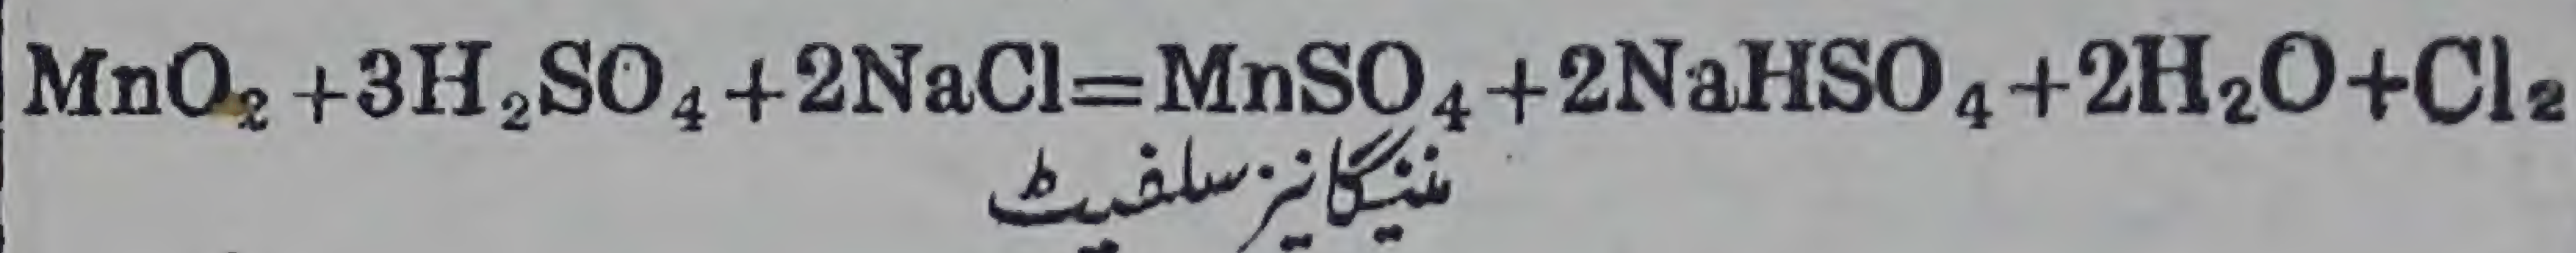 MnO₂ +3H₂SO₄+2NaCl=MnSO₄+2NaHSO₄+2H₂O+Cl₂
مینگانیز سلفیٹ